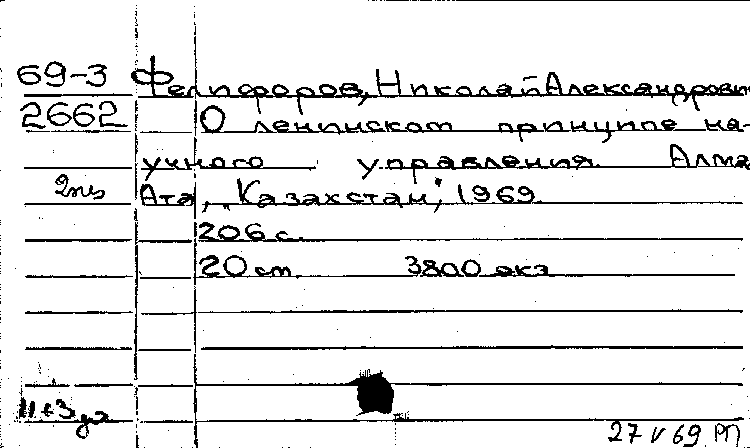 69-3 Фелифоров, Николай Александрови
2662 О ленинском принципе на-
учного управления. Алма
2экз Ата, "Казахстан", 1969.
206 с.
20 см. 3800 экз
27 V 69 РП